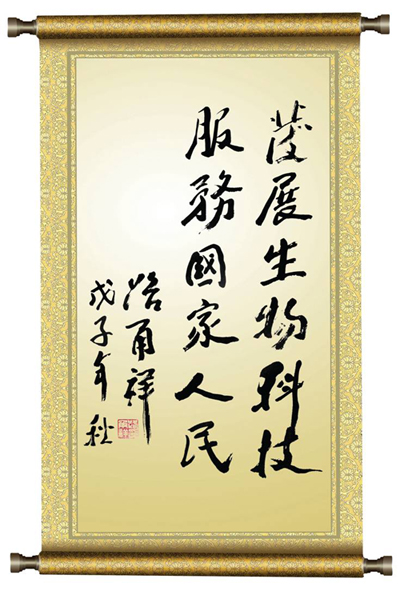 發展生物科技
服務國家人民
路甬祥
戊子年秋